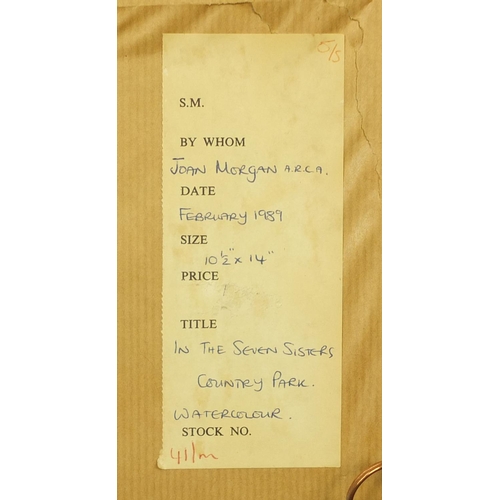 5/5
S.M.
BY WHOM
JOAN MORGAN A.R.C.A.
DATE
FEBRUARY 1989
SIZE
10½" x 14"
PRICE
TITLE
IN THE SEVEN SISTERS
COUNTRY PARK.
WATERCOLOUR.
STOCK NO.
41/m